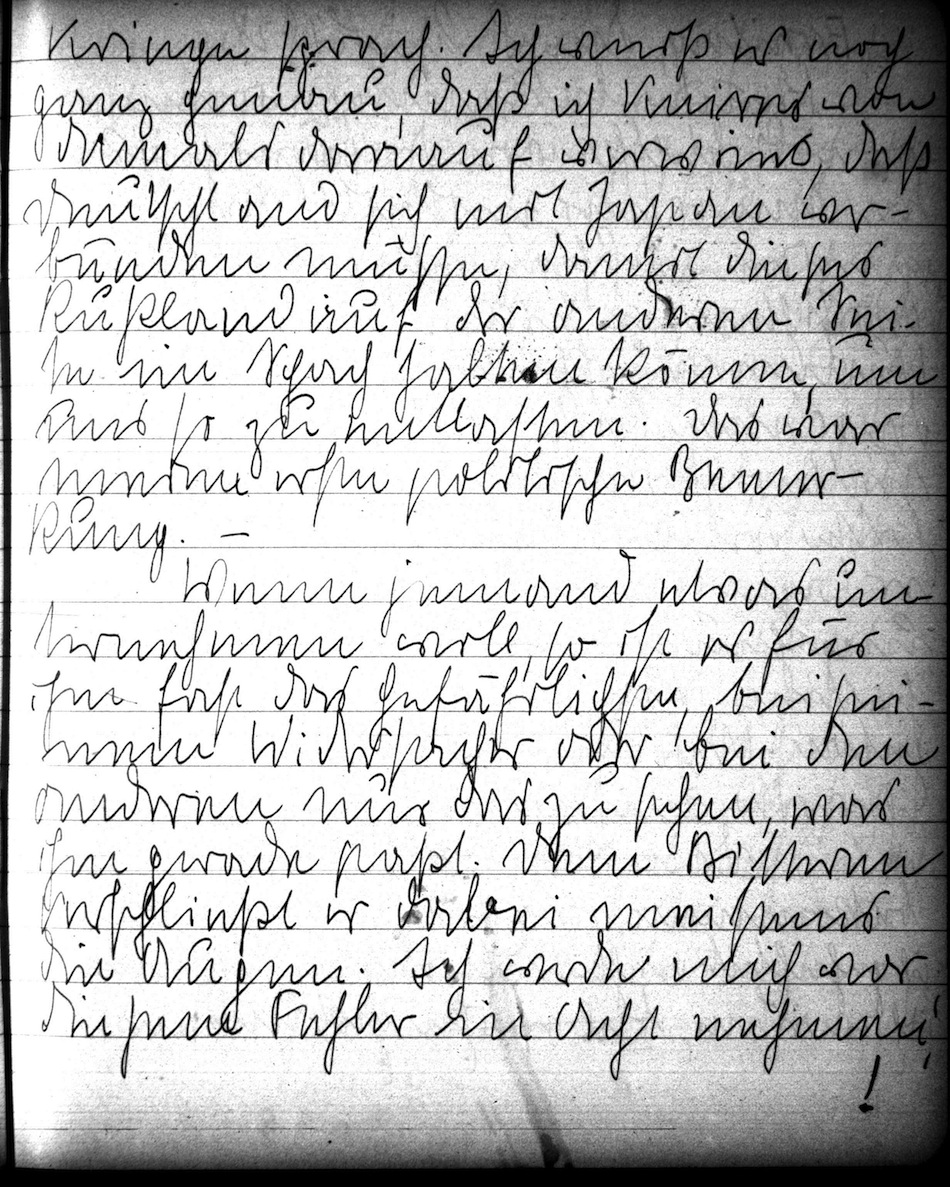 Kriege sprach. Ich weiß es noch
ganz genau, daß ich Knirps von
damals darauf verwies, daß
Deutschland sich mit Japan ver-
bünden müsse, damit dieses
Rußland auf der anderen Sei-
te in Schach halten könne, um
uns so zu entlasten. Das war
meine erste politische Bemer-
kung. –
Wenn jemand etwas un-
ternehmen will, so ist es für
ihn fast das Gefährlichste, bei sei-
nem Widersacher oder bei den
anderen nur das zu sehen, was
ihm gerade paßt. Dem Bitteren
verschließt er dabei meistens
die Augen. Ich werde mich vor
diesem Fehler in Acht nehmen
!